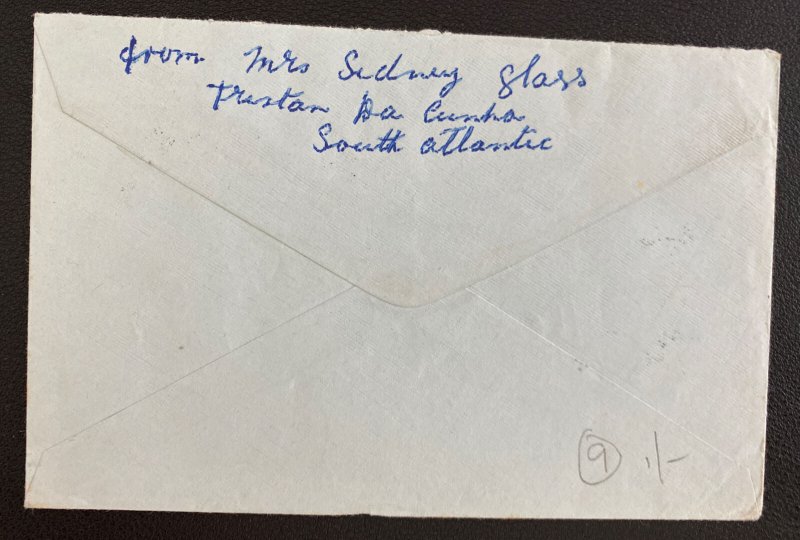 from Mrs Sidney Glass
Tristan Da Cunha
South Atlantic
9 1/-